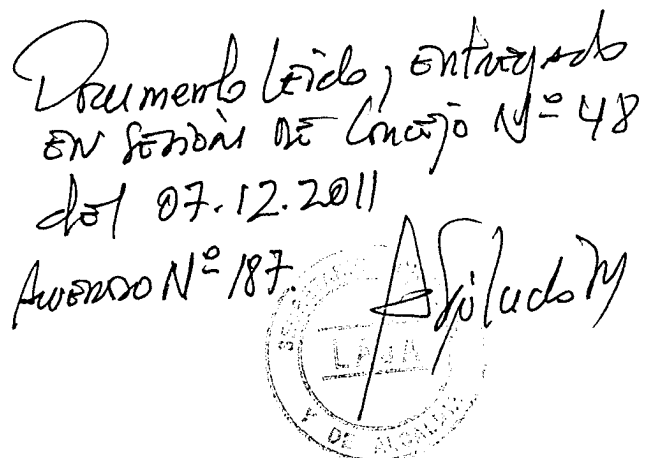 Documento leído, entregado
EN SESIÓN DE Concejo Nº 48
del 07.12.2011
ACUERDO Nº 187.
LAJA
Y DE ALCALDIA